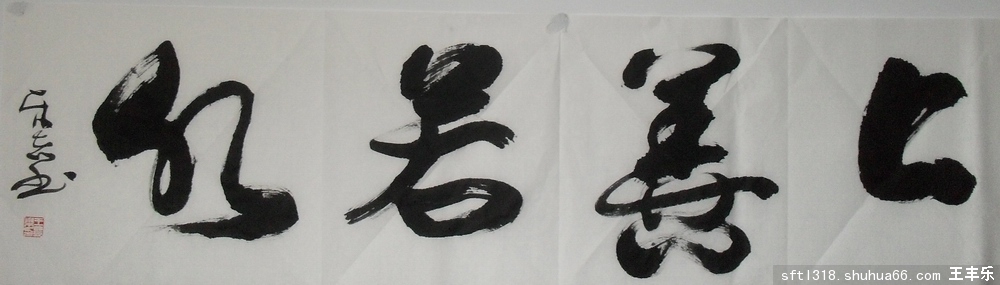 上善若水
sftl318.shuhua66.com 王丰乐